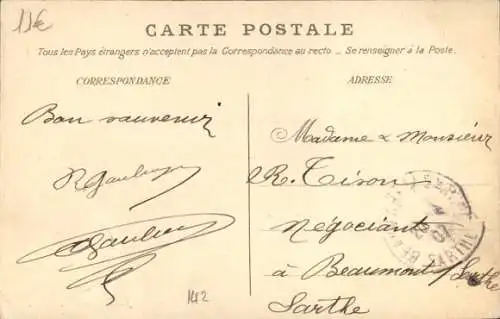 15€
CARTE POSTALE
Tous les Pays étrangers n'acceptent pas la Correspondance au recto _ Se renseigner à la Poste.
CORRESPONDANCE
Bon souvenir
R Gaulu
Gaulu
142
ADRESSE
Madame & Monsieur
R. Tison
Négociant
à Beaumont s/ Sarthe
Sarthe
07
SARTHE